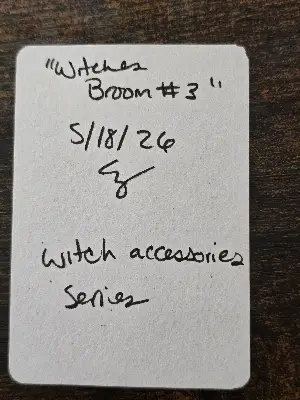 "Witches
Broom #3"
5/18/26
witch accessories
Series